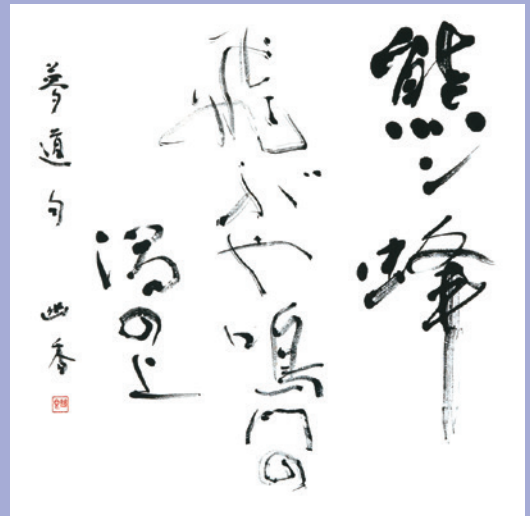 熊ン蜂
飛ぶや鳴門の
渦の上
夢道句 幽香